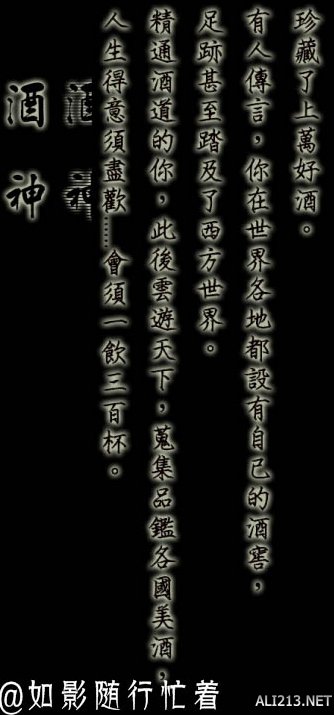 酒神
人生得意須盡歡……會須一飲三百杯。
精通酒道的你，此後雲遊天下，蒐集品鑑各國美酒，
足跡甚至踏及了西方世界。
有人傳言，你在世界各地都設有自己的酒窖，
珍藏了上萬好酒。
@如影随行忙着
ALI213.NET